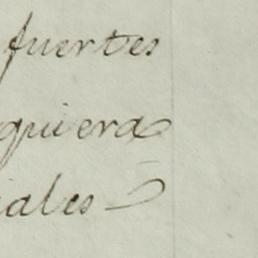 fuertes
quiera
iales